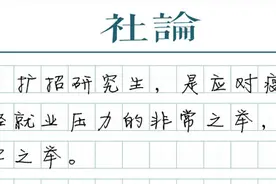 社論
扩招研究生，是应对疫
就业压力的非常之举，
之举。